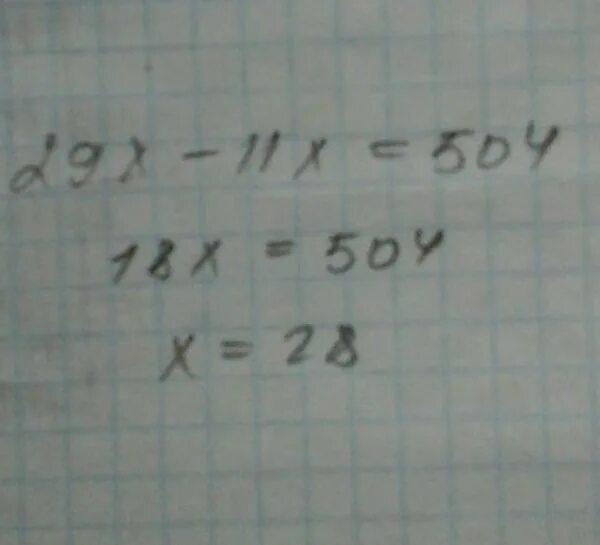 29x - 11x = 504
18x = 504
x = 28